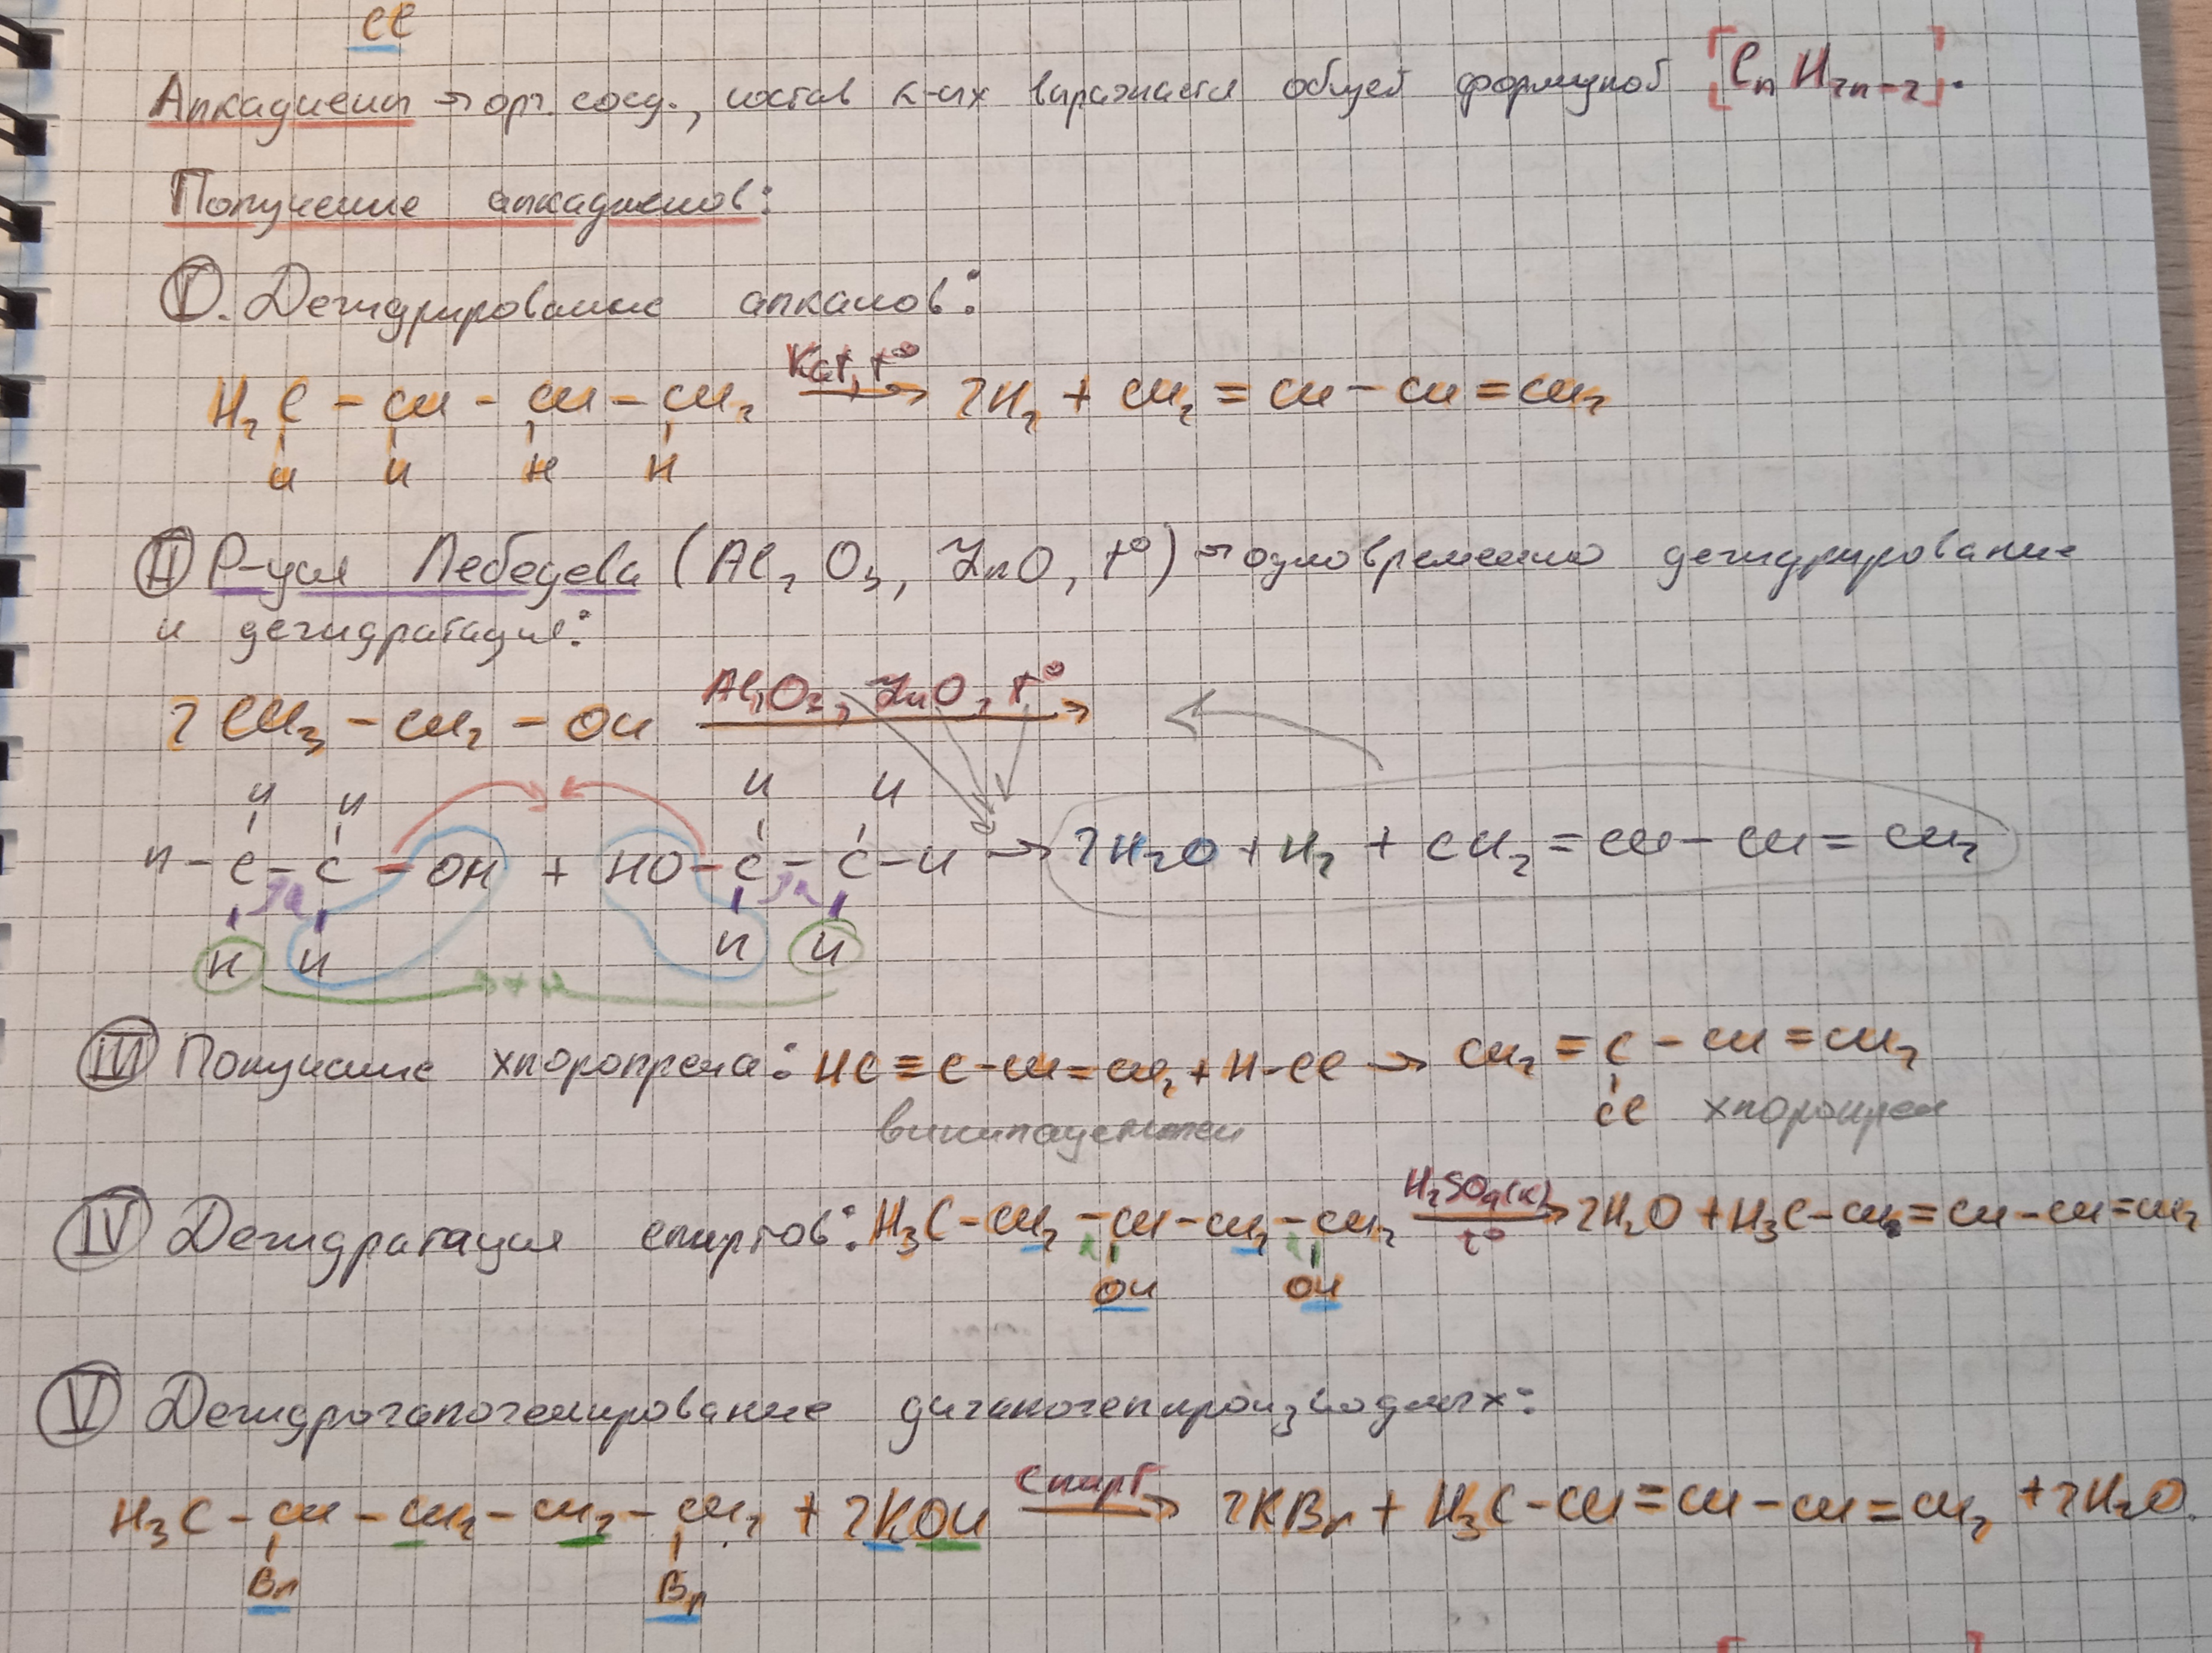 Cl
Алкадиены → орг. соед., состав к-ых выражается общей формулой [CnH2n-2].
Получение алкадиенов:
I. Дегидрирование алканов:
Kat, t°
H2C - CH - CH - CH2 → 2H2 + CH2 = CH - CH = CH2
H H H H
II Р-ция Лебедева (Al2O3, ZnO, t°) → одновременно дегидрирование
и дегидратация:
Al2O3, ZnO, t°
2CH3 - CH2 - OH →
H H H H
H - C - C - OH + HO - C - C - H → 2H2O + H2 + CH2 = CH - CH = CH2
H H H H
III Получение хлоропрена: HC ≡ C - CH = CH2 + H - Cl → CH2 = C - CH = CH2
винилацетилен Cl хлоропрен
H2SO4(к)
IV Дегидратация спиртов: H3C - CH2 - CH - CH2 - CH2 → 2H2O + H3C - CH = CH - CH = CH2
t°
OH OH
V Дегидрогалогенирование дигалогенпроизводных:
спирт
H3C - CH - CH2 - CH2 - CH2 + 2KOH → 2KBr + H3C - CH = CH - CH = CH2 + 2H2O.
Br Br